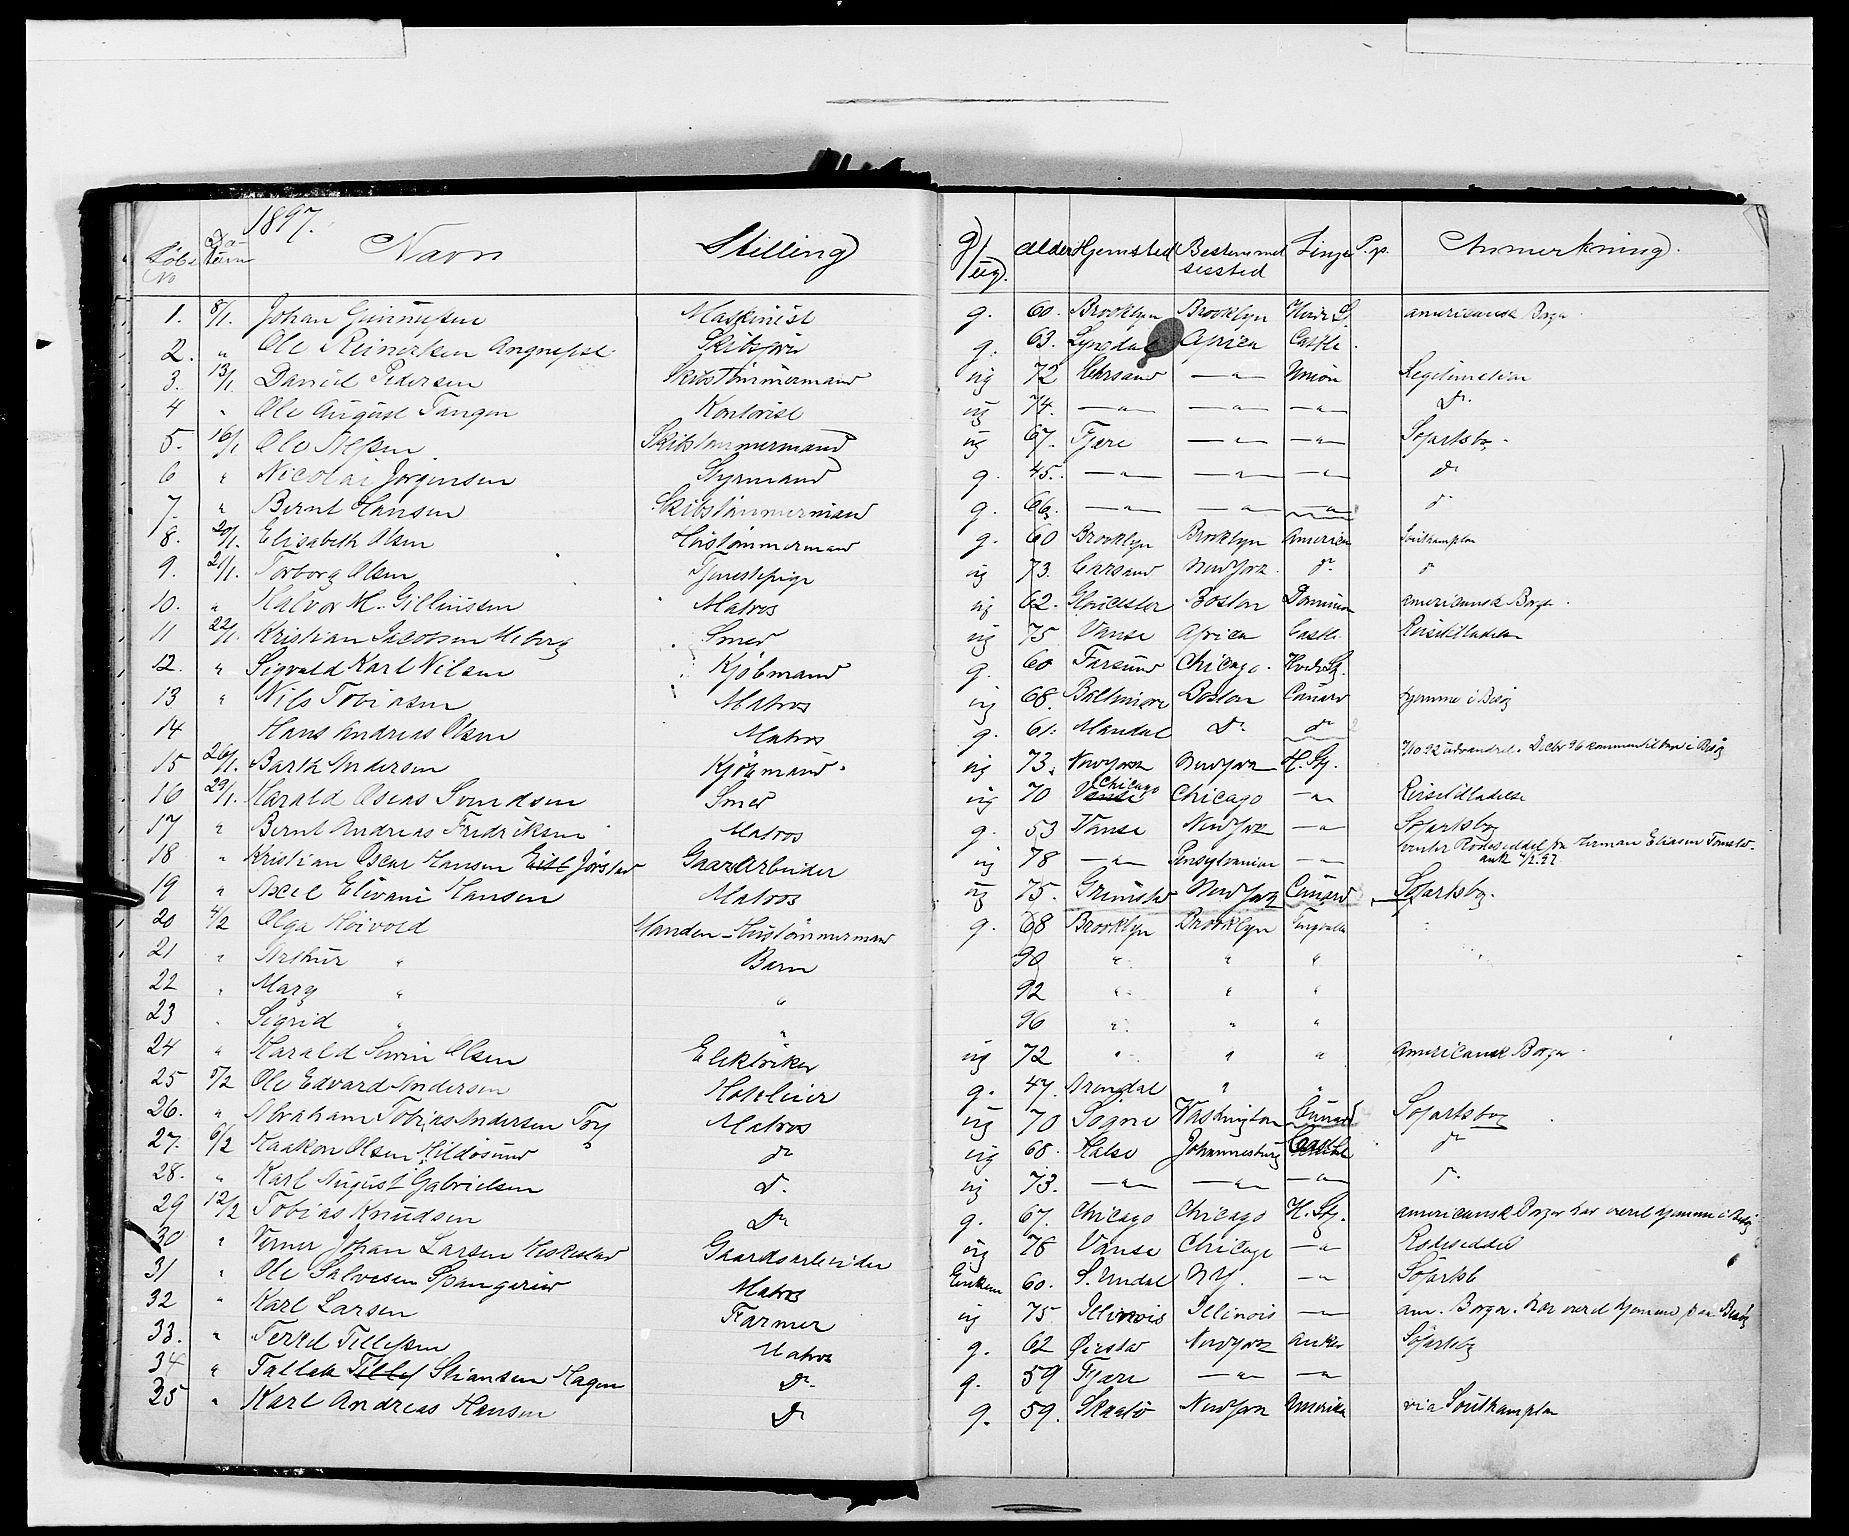 1897.
Løbe No Datum Navn Stilling g/ug. Alder Hjemsted Bestemmelsessted Linje P.p. Anmerkning.
1. 8/1. Johan Gunnufsen Maskinist g. 60. Brooklyn Brooklyn americansk Borger
2. " Ole Reinertsen g. 63. Lyngdal Africa Castle
3. 13/1 David Pedersen Skibstømmermand ug 72 Chrsand —"— Union Legitimation
4 " Ole August Tangen Kontorist ug 74. —"— —"— —"— Do.
5. 16/1 Ole Nilsen Skibstømmermand ug 67. Fjære —"— —"— Søfartsbg.
6 " Nicolai Jørgensen Styrmand g. 45. —"— —"— —"— do
7. " Bernt Hansen Skibstømmermand g. 66. —"— —"— —"— do
8. 20/1. Elisabeth Olsen Hustømmermand g. 60 Brooklyn Brooklyn American Southampton
9. 21/1. Torborg Olsen Tjenestepige ug 73. New York do do
10. " Halvor M. Gillinssen Matros ug 62. Gloucester Boston Dominion americansk Borger.
11 22/1 Kristian Jacobsen Smed ug 75. Vanse Africa Castle Reisetilladelse
12. " Sigvald Karl Nilsen Kjøbmand g. 60 Farsund Chicago.
13 " Nils Tobiasen Matros ug 68. Baltimore Boston Cunard hjemme i Besøg
14 Hans Andreas Olsen Matros g. 61. Mandal Do do
15 26/1. Barth Andersen Kjøbmand. ug 73. New York New York H. Stg. No 92 udvandret. Decbr 96 kommen tilbage i Besøg
16 29/1. Harald Oscas Svendsen Smed ug 70 Vanse Chicago Chicago —"— Reisetilladelse
17 " Bernt Andreas Fredriksen Matros g. 53 Vanse New York —"— Søfartsbg
18 " Kristian Oscar Hansen Jørstad Gaardarbeider ug 78 —"— Pensylvanien —"— venter Rodeseddel fra Herman Eliasen
ank 4/2.97
19 " Axel Elivani Hansen Matros ug 75. Grimstad New York Cunard Søfartsbg.
20 4/2 Olga Høivold Manden - Hustømmermand g. 68 Brooklyn Brooklyn Tingvalla
21 " Arthur " Barn 90 " " "
22 " Mary " " 92 " " "
23 " Sigrid " " 96 " " "
24 " Harald Severin Olsen Elektriker ug 72 " " " americansk Borger.
25 5/2 Ole Edvard Andersen Hoteleier g. 47. Arendal " "
26. " Abraham Tobias Andersen Matros ug 70 Søgne Washington Cunard Søfartsbog
27. 6/2 Haakon Olsen Hildøsund do ug 68. Halse Johannesburg Castle do
28. " Karl August Gabrielsen do. ug 73. —"— —"— —"— do.
29 12/2 Tobias Knudsen Do g. 67. Chicago Chicago H. Stg. americansk Borger har været hjemme i Besøg
30 " Verner Johan Larsen Heskestad Gaardsarbeider ug 78 Vanse Chicago —"— Rodeseddel
31 " Ole Salvesen Spangereid Matros Enkem 60. S. Undal N.Y. —"— Søfartsb
32 " Karl Larsen Farmer ug 75. Illinois Illinois —"— am. Borger. har været hjemme paa Besøg
33. " Terkel Tillefsen Matros g. 62 Øirstad New York Anker Søfartsbg
34 " Tallak Stiansen Hagen Do. g. 59 Fjære —"— —"—
35 " Karl Andreas Hansen Do g. 59. Skaatø New York Amerika via Southampton